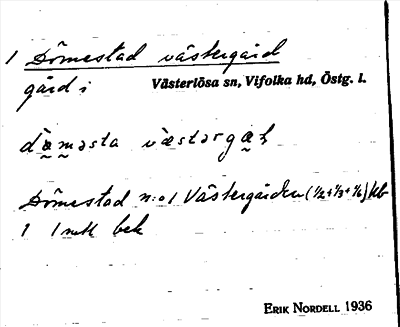 1 Dömestad västergård
gård i Västerlösa sn, Vifolka hd, Östg. l.
dömasta västargaḷ
Dömestad n:o 1 Västergården (1/2+1/3+1/6) jb
1 1 mtl bek
ERIK NORDELL 1936